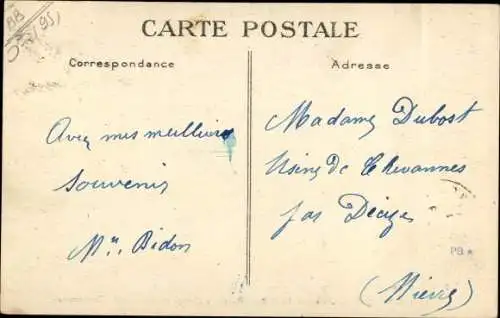 BB
(95)
CARTE POSTALE
Correspondance
Adresse
Avec mes meilleurs
souvenirs
Mme Bidon
Madame Dubost
Usine de Chevannes
par Decize
(Nièvre)
PB